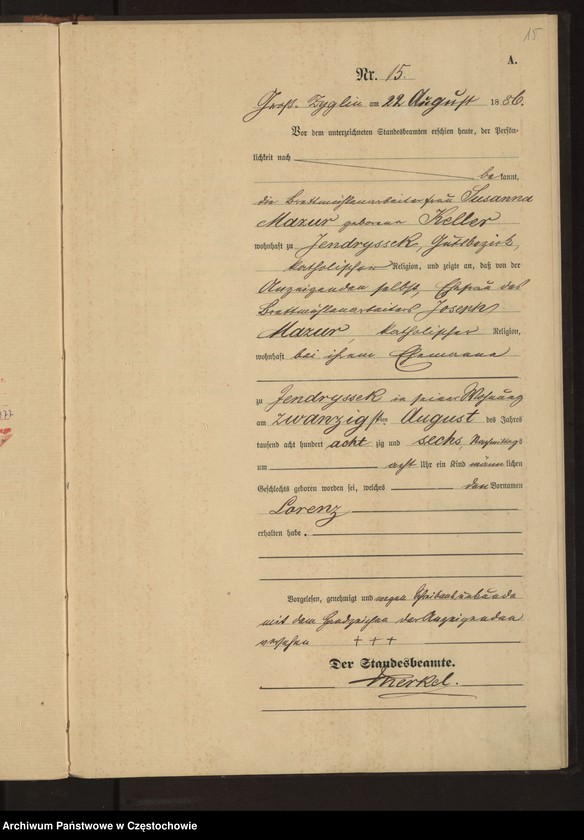 15
A.
Nr. 15.
Groß-Zyglin am 22 August 1886.
Vor dem unterzeichneten Standesbeamten erschien heute, der Persön-
lichkeit nach
bekannt,
die Brettmühlenarbeiterfrau Susanna
Mazur geborene Keller
wohnhaft zu Jendryssek, Gutsbezirk,
katholischer Religion, und zeigte an, daß von der
Anzeigenden selbst, Ehefrau des
Brettmühlenarbeiters Joseph
Mazur, katholischer Religion,
wohnhaft bei ihrem Ehemanne
zu Jendryssek in seiner Wohnung
am zwanzigsten August des Jahres
tausend acht hundert achtzig und sechs, Nachmittags
um acht Uhr ein Kind männlichen
Geschlechts geboren worden sei, welches den Vornamen
Lorenz
erhalten habe.
Vorgelesen, genehmigt und wegen Schreibensunkunde
mit dem Handzeichen der Anzeigenden
versehen + + +
Der Standesbeamte.
Merkel.
Archiwum Państwowe w Częstochowie